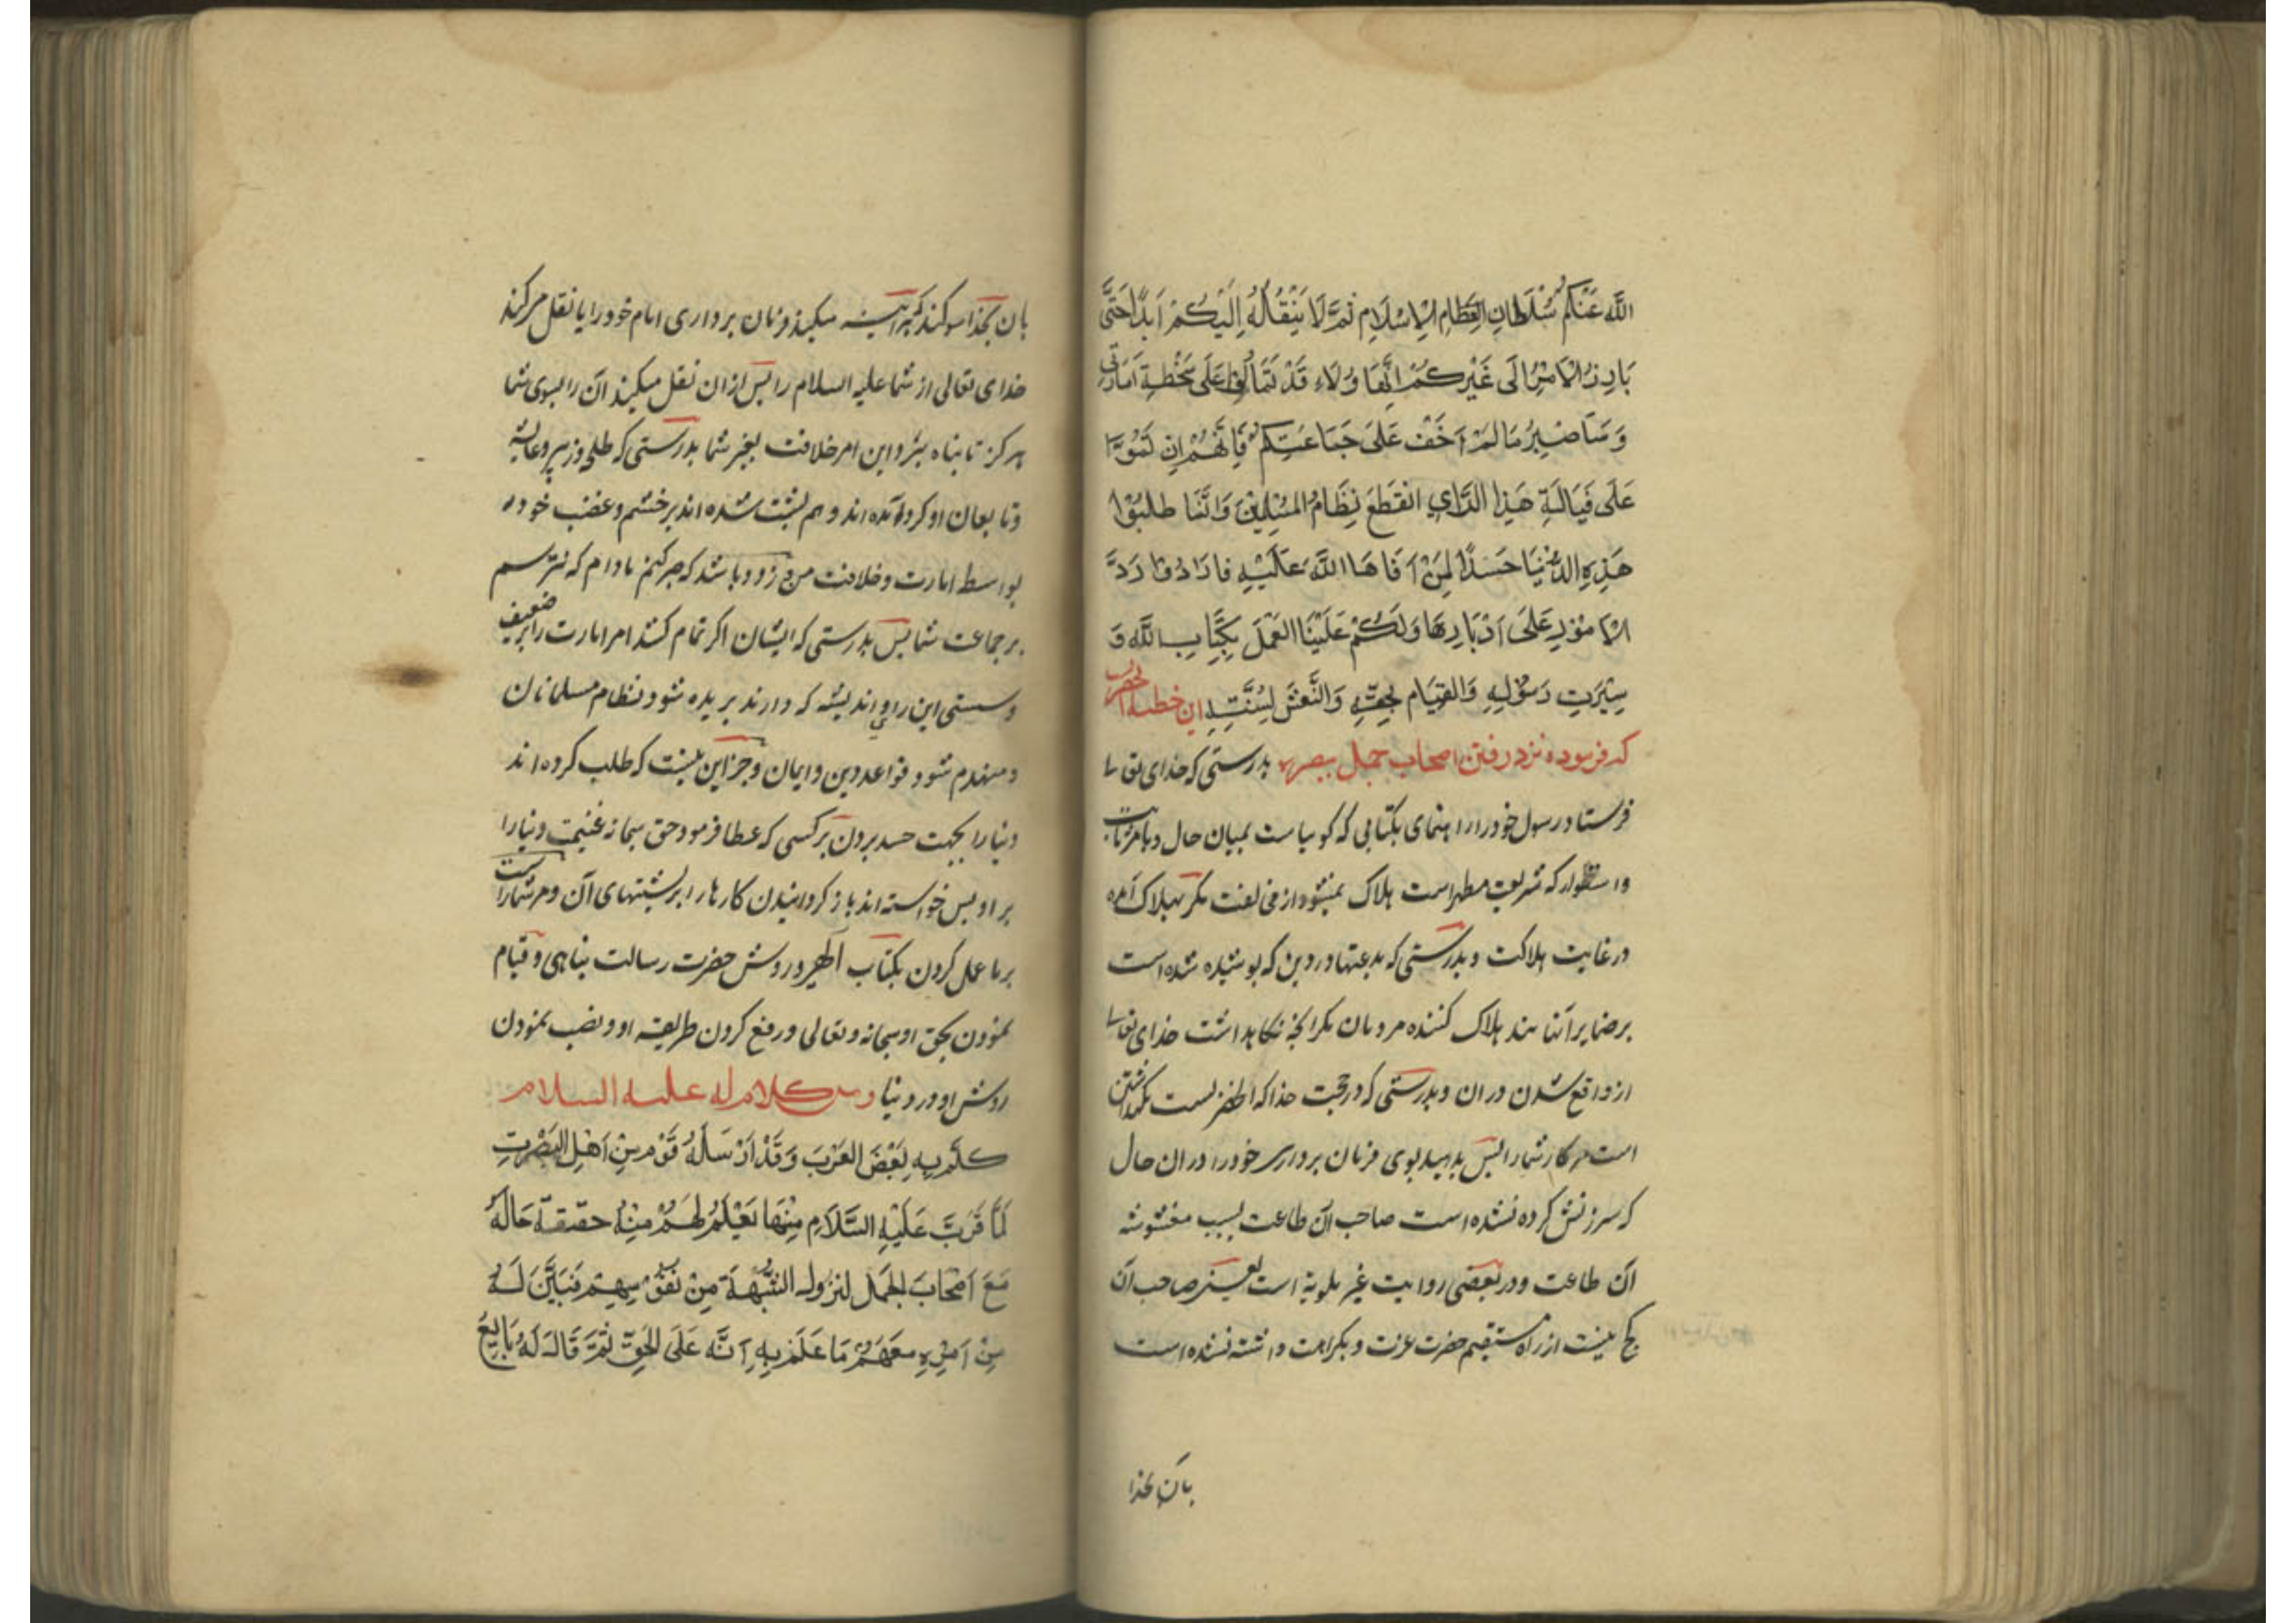 اللَّه عَنْكُم سُلْطَانِ العِظَامِ الاِسْلَامِ ثُمَّ لَا يَنْقُلُهُ اِلَيْكُمْ اَبَدًا حَتَّى
يَارِزُ الاَمْرُ اِلَى غَيْرِكُمْ اِنَّ هَاوُلَاءِ قَدْ تَمَالَؤُا عَلَى سَخْطَةِ اَمَارَتِى
وَسَاَصْبِرُ مَا لَمْ اَخَفْ عَلَى جَمَاعَتِكُمْ فَاِنَّهُمْ اِن تَمَّوُا
عَلَى فَيَالَةِ هَذِا الرَّايِ انْقَطَعَ نِظَامُ المُسْلِمِيْنَ وَاِنَّمَا طَلَبُوْا
هَذِهِ الدُّنْيَا حَسَدًا لِمَنْ اَفَاهَا اللَّهُ عَلَيْهِ فَارَادُوْا رَدَّ
الاُمُوْرِ عَلَى اَدْبَارِهَا وَلَكُمْ عَلَيْنَا العَمَلَ بِكِتَابِ اللَّه وَ
سِيْرَتِ رَسُوْلِهِ وَالقِيَام بِحَقِّهِ وَالنَّعْش لِسُنَّتِهِ اين خطبه آنحضرت
كه فرموده نزد رفتن اصحاب جمل ببصره بدرستى كه خداى تعالى
فرستاد رسول خود را راهنماى بكتابى كه كوياست ببيان حال و بامر ثابت
واستوار كه شريعت مطهر است هلاك نميشود از مخالفت مكر هلاك آمده
در غايت هلاكت و بدرستى كه بدعتها در دين كه پوشيده شده است
بر ضماير آنانند هلاك كننده مردمان مكر آنچه نكاهداشت خداى تعالى
از واقع شدن در ان و بدرستى كه در حجت خدا كه اظهر است نكهداشتن
است مر كار شما را پس بدهيد بوى فرمان بردارى خود را در ان حال
كه سرزنش كرده نشده است صاحب آن طاعت بسبب مغشوشه
آن طاعت و در بعضى روايت غير ملوية است يعنى صاحب آن
كج نيست از راه مستقيم حضرت عزت و بكراهت داشته نشده است
بان بخدا
بان بخدا سوكند كه البته ميكنيد فرمان بردارى امام خود را يا نقل ميكند
خداى تعالى از شما عليه السلام را پس ازان نقل ميكند آن را بسوى شما
هركز تا پناه برد اين امر خلافت بغير شما بدرستى كه طلحه و زبير و عايشه
وتابعان او كرد آمده اند و هم پشت شده اند بر خشم و غضب خود
بواسطه امارت و خلافت من و زود باشد كه صبر كنم مادام كه نترسم
بر جماعت شما پس بدرستى كه ايشان اكر تمام كنند امر امارت را بر ضعيف
وسستى اين راى و انديشه كه دارند بريده شود نظام مسلمانان
ومنهدم شود قواعد دين وايمان وجز اين نيست كه طلب كرده اند
دنيا را بجهت حسد بردن بر كسى كه عطا فرمود حق سبحانه غنيمت دنيا را
بر او پس خواسته اند باز كردانيدن كارها را بر پشتهاى آن و مر شما راست
بر ما عمل كردن بكتاب الهى و روش حضرت رسالت پناهى و قيام
نمودن بحق او سبحانه و تعالى و رفع كردن طريقه او و نصب نمودن
روش او در دنيا ومن كلام له عليه السلام
كَلَّمَ بِهِ بَعْضَ العَرَبِ وَقَدْ اَرْسَلَهُ قَوْمٌ مِنْ اَهْلِ البَصْرَتِ
لَمَّا قَرُبَ عَلَيْهِ السَّلَام مِنْهَا لَعْيْلَمُ لَهُمْ مِنْهُ حقيقة حَالَهُ
مَعَ اَصْحَابَ الجَمَل لِنزول الشُّبْهَة مِنْ نفُوْسِهِمْ فَبَيَّنَ لَهُ
مِنْ اَمْرِهِ مَعَهُمْ مَا عَلِمَ بِهِ اَنَّه عَلَى الحَقِّ ثُمَّ قَالَ لَهُ بَايِعْ